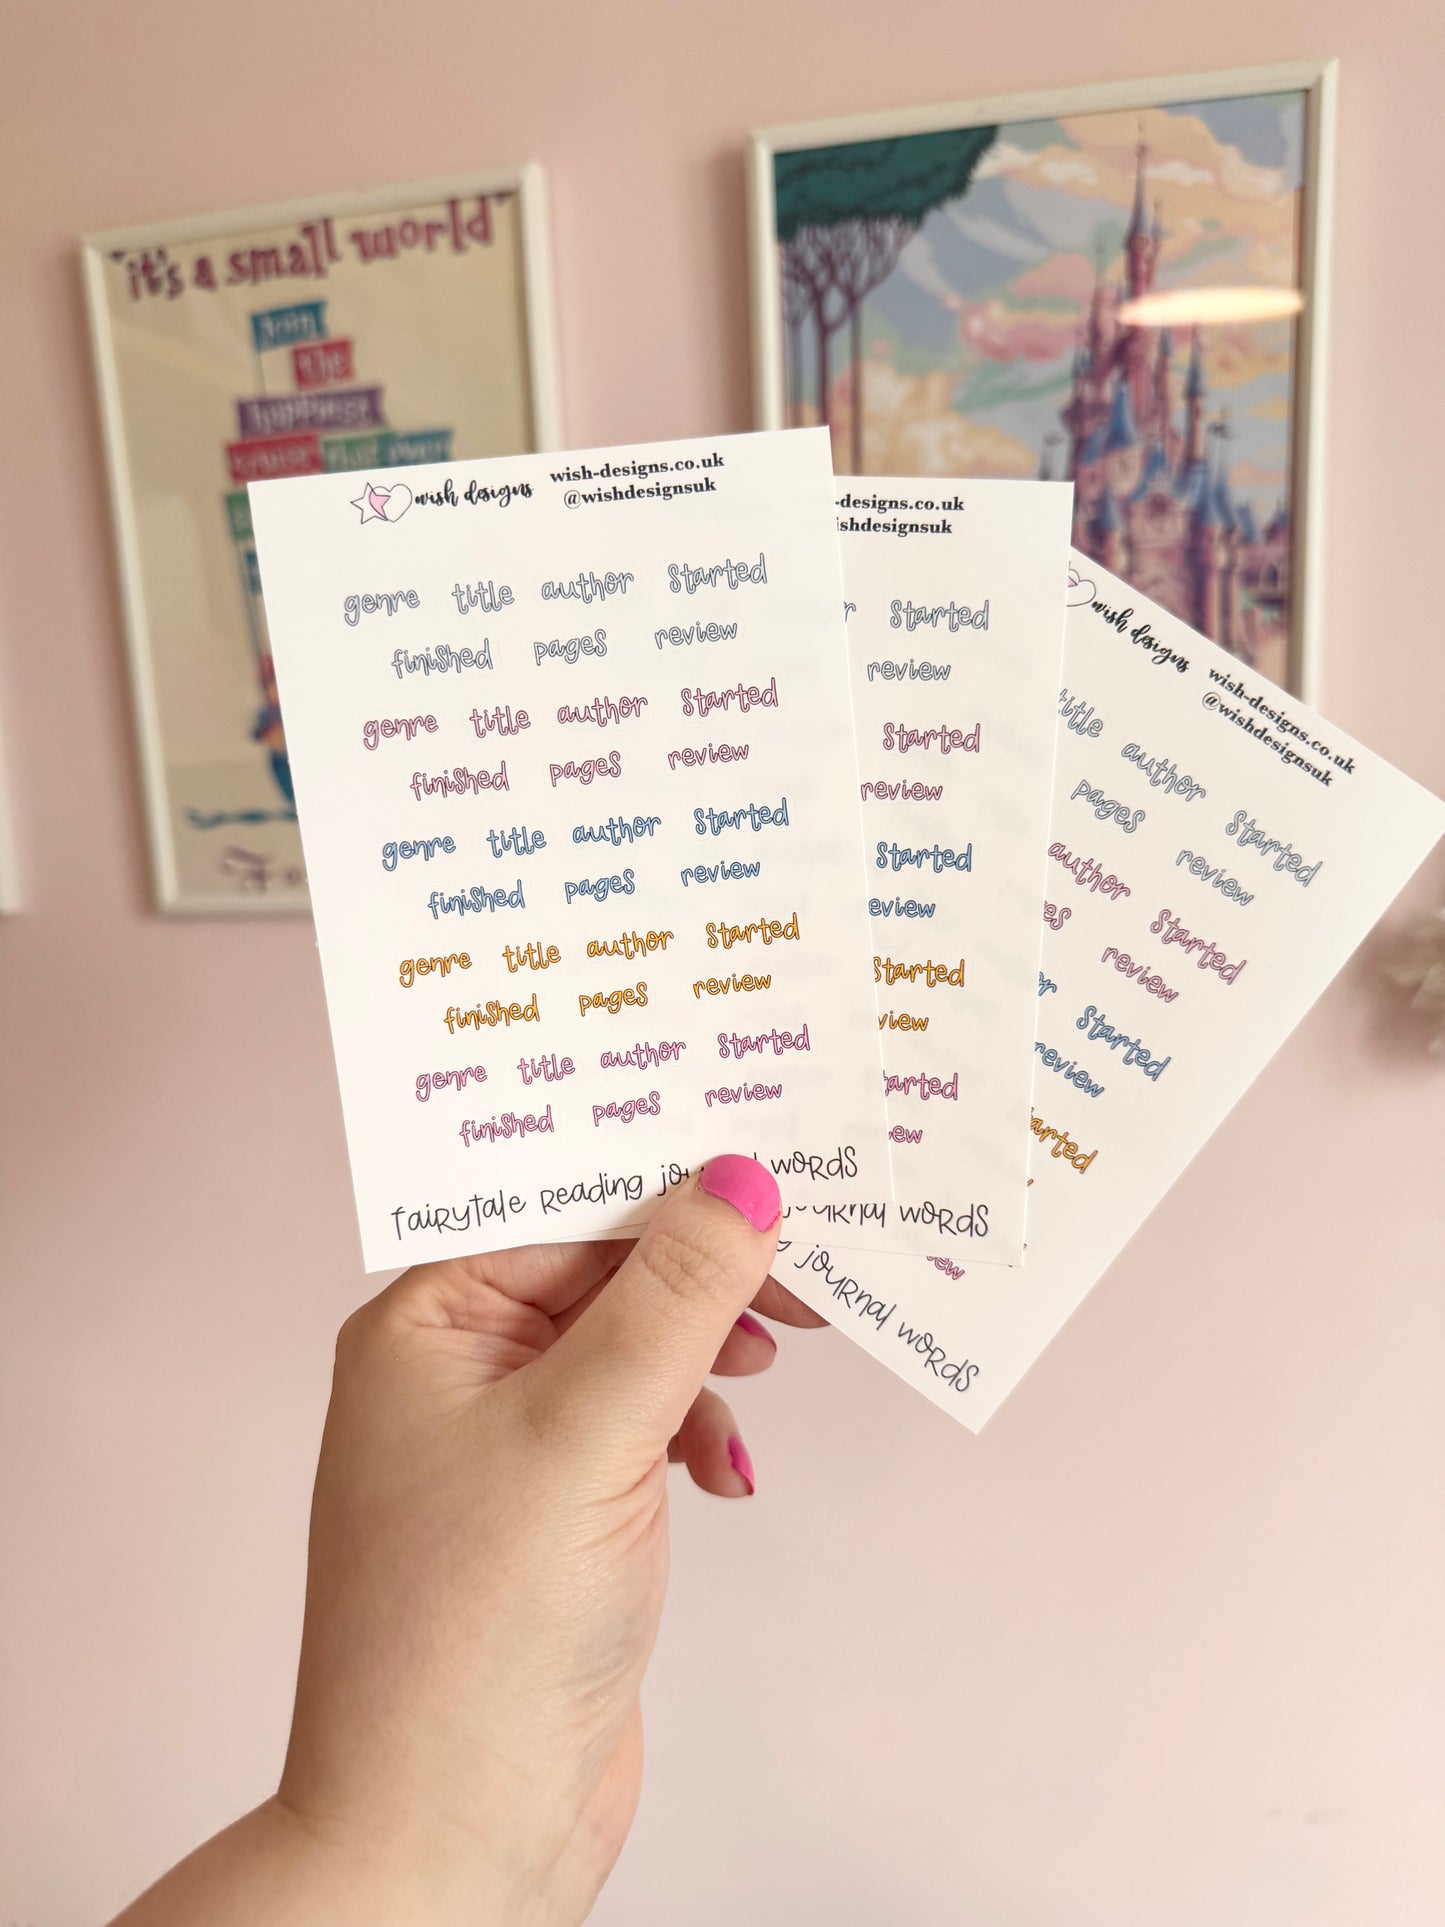 "it's a small world"
Join
the
happiest
cruise that ever
wish designs
wish-designs.co.uk
@wishdesignsuk
genre title author started
finished pages review
genre title author started
finished pages review
genre title author started
finished pages review
genre title author started
finished pages review
genre title author started
finished pages review
fairytale reading words
-designs.co.uk
ishdesignsuk
started
review
started
review
started
eview
started
view
tarted
ew
journal words
wish designs
wish-designs.co.uk
@wishdesignsuk
title author started
pages review
author started
es review
started
review
arted
ew
journal words